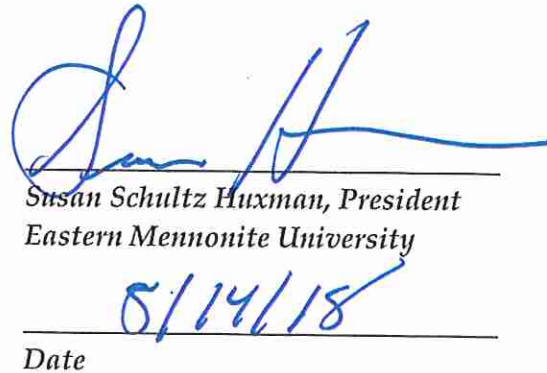 Susan Schultz Huxman, President
Eastern Mennonite University
8/14/18
Date